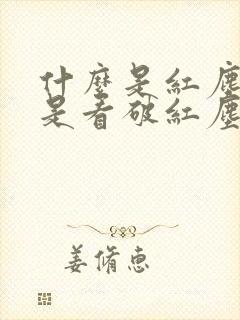 什麼是紅塵
是看破紅塵
姜脩惠